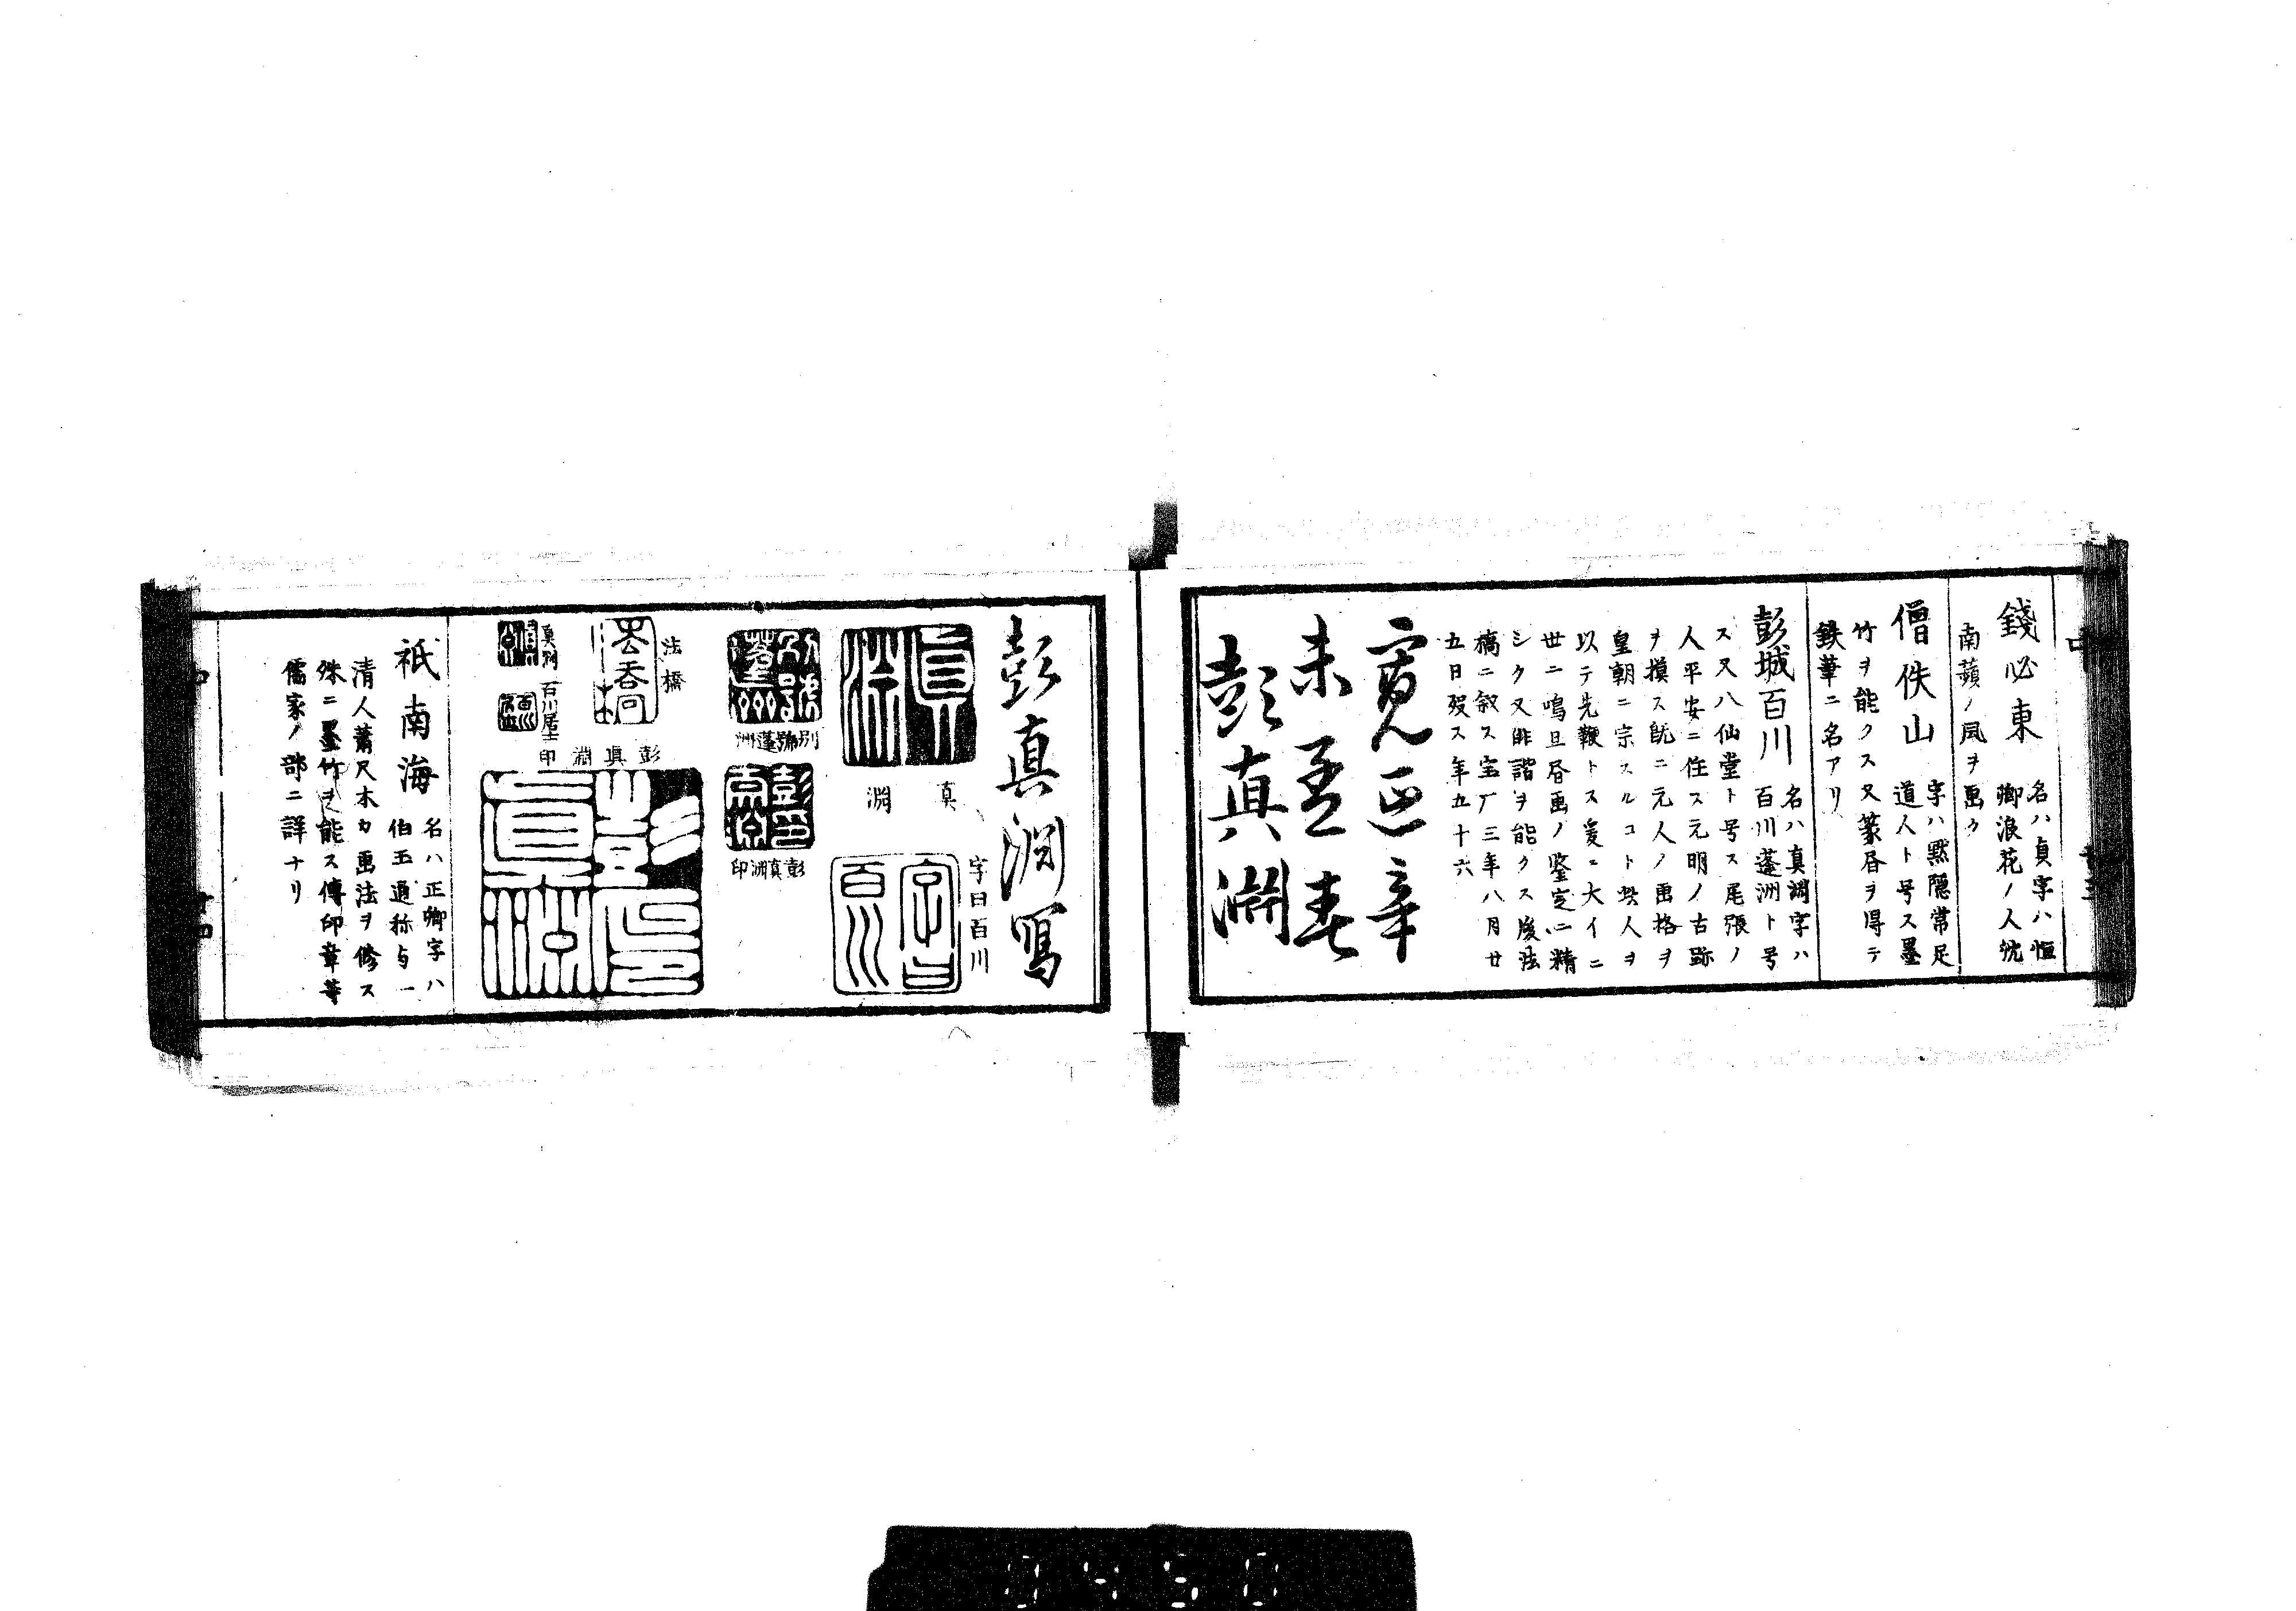 錢必東
名ハ貞字ハ恒
卿浪花ノ人沈
南蘋ノ風ヲ画ク
僧佚山
字ハ黙隠常足
道人ト号ス墨
竹ヲ能クス又篆書ヲ得テ
鉄華ニ名アリ
彭城百川
名ハ真淵字ハ
百川蓬洲ト号
ス又八仙堂ト号ス尾張ノ
人平安ニ住ス元明ノ古跡
ヲ摸ス既ニ元人ノ画格ヲ
皇朝ニ宗スルコト此人ヲ
以テ先鞭トス爰ニ大イニ
世ニ鳴且書画ノ鑒定ニ精
シク又俳諧ヲ能クス後法
橋ニ叙ス宝厂三年八月廿
五日歿ス年五十六
寛延辛
未孟春
彭真淵
彭真淵寫
真淵
字曰百川
別號蓬洲
彭真淵印
法橋
彭真淵印
真淵
百川居士
祇南海
名ハ正卿字ハ
伯玉通称与一
清人蕭尺木カ画法ヲ修ス
殊ニ墨竹ヲ能ス傳印章等
儒家ノ部ニ詳ナリ